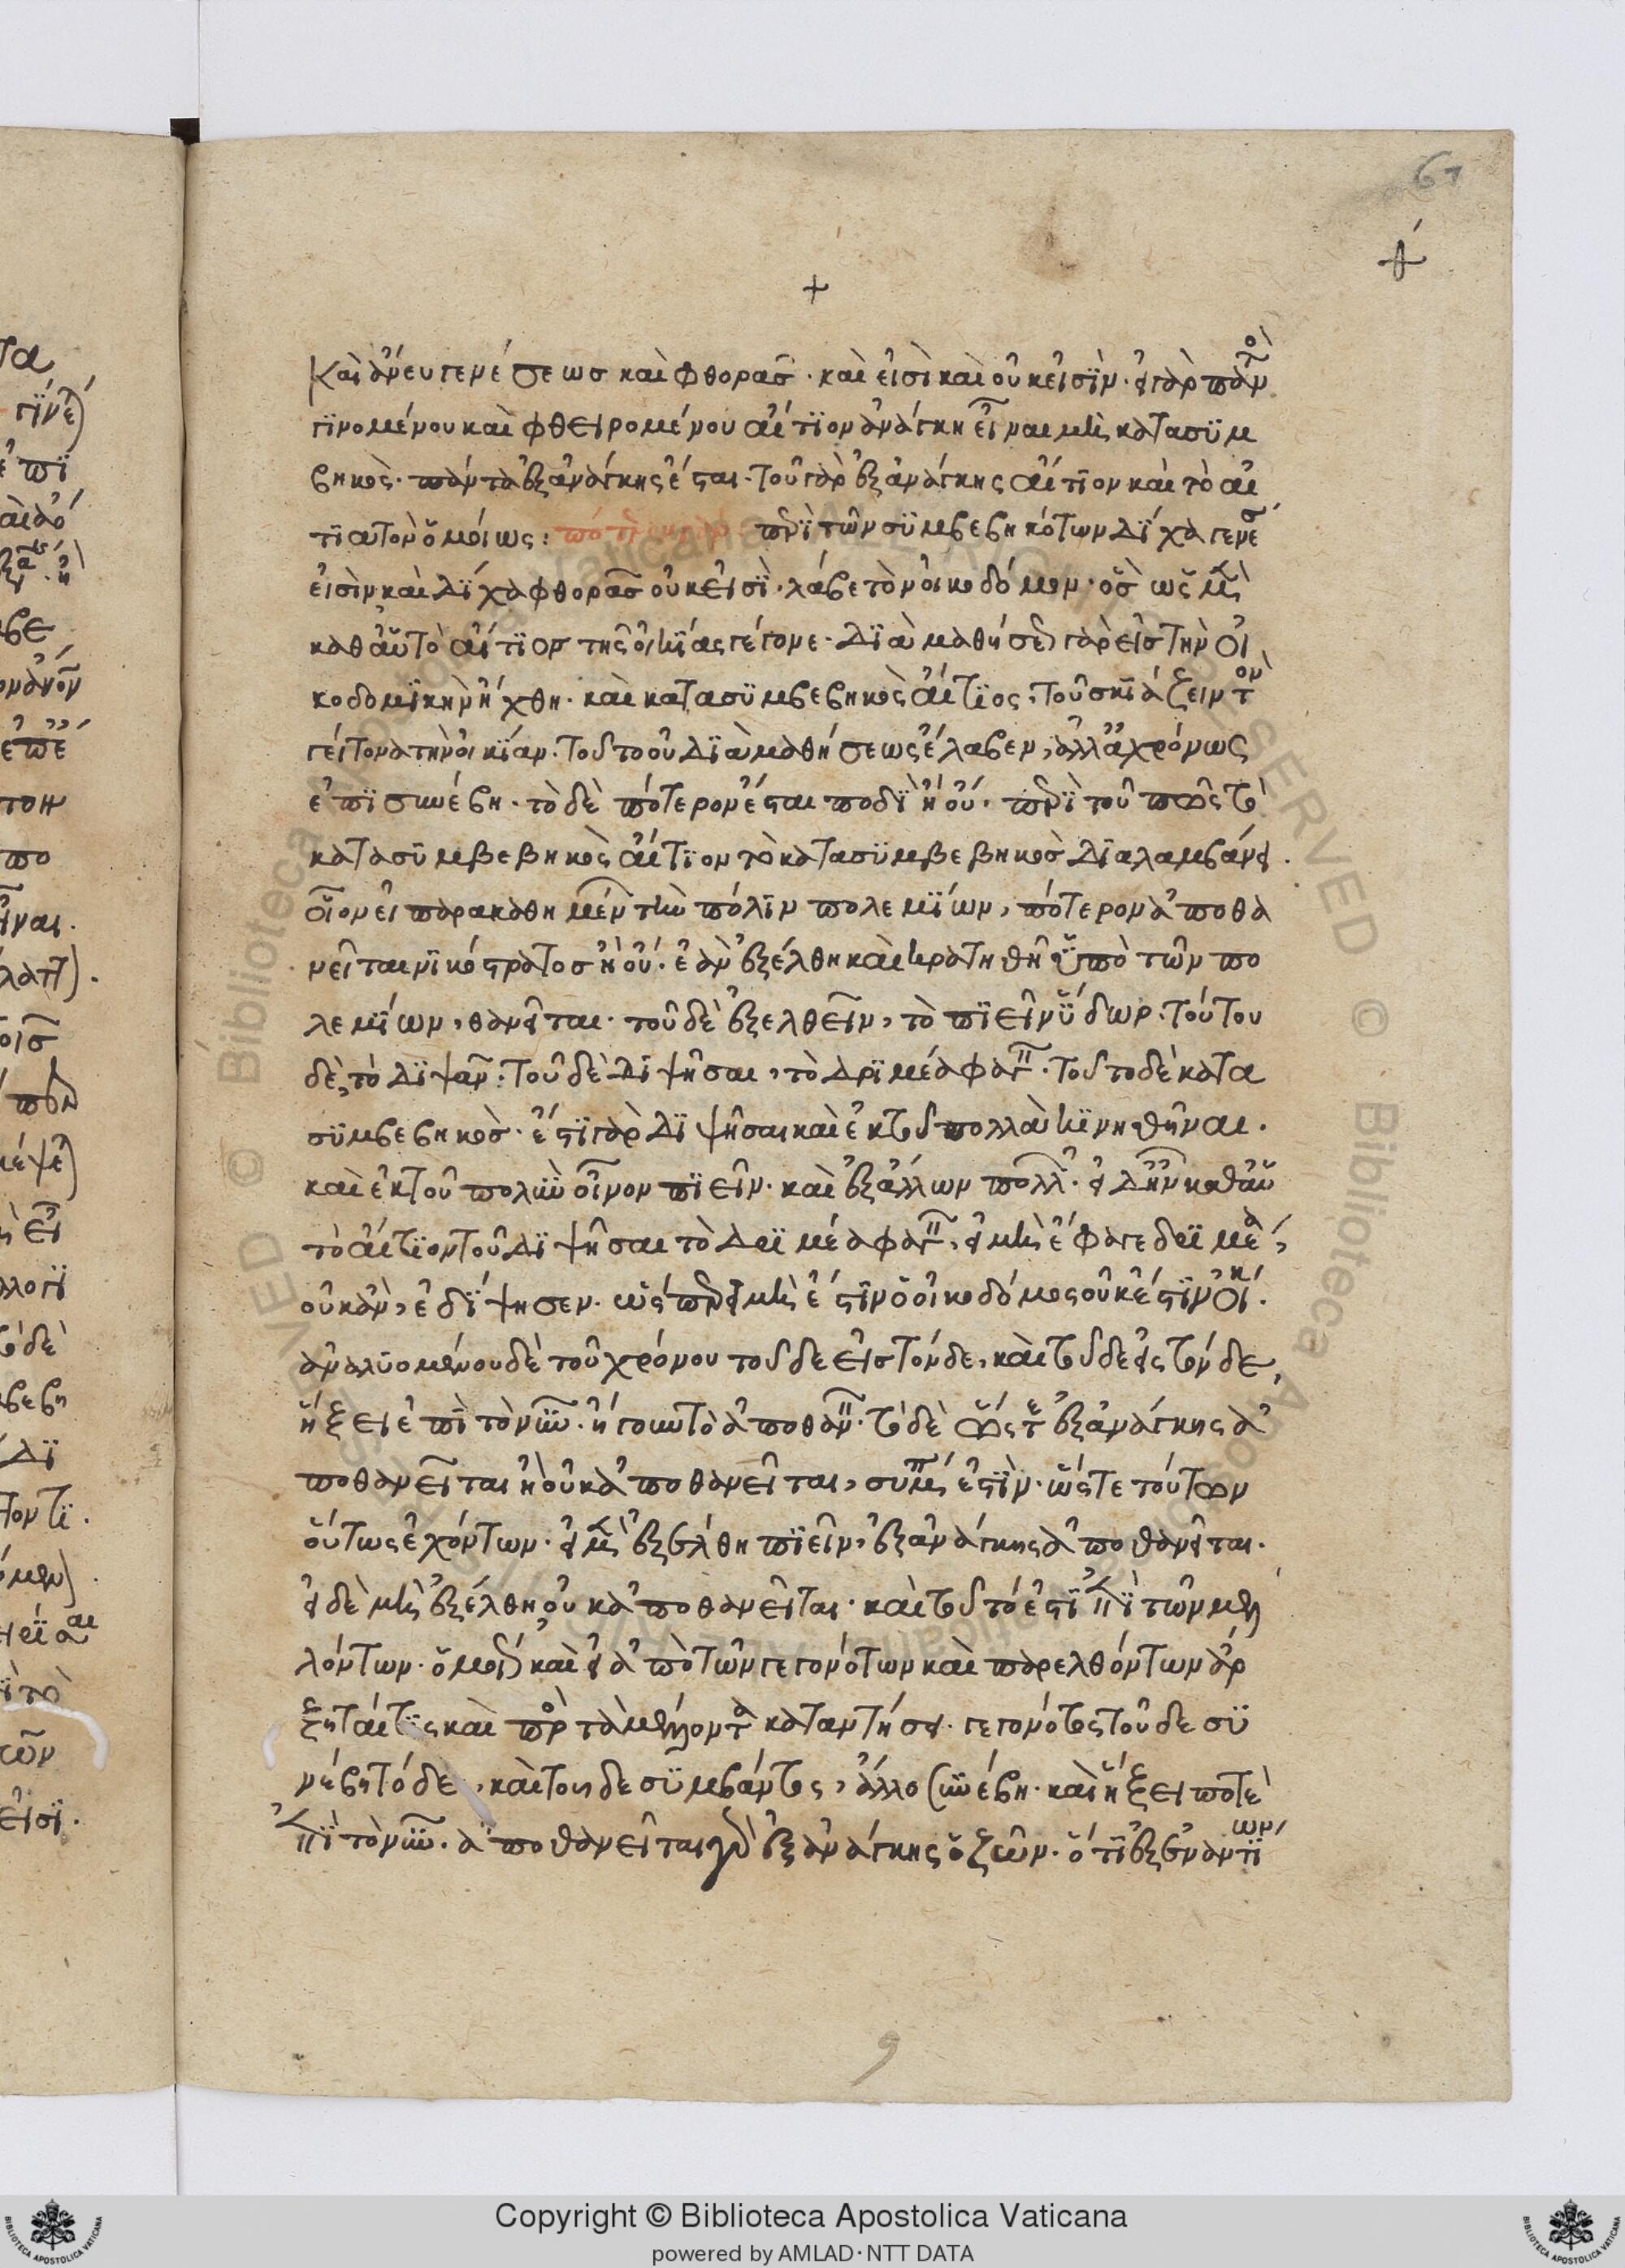 67
+
Καὶ ἄνευ γενέσεως καὶ φθορᾶς· καὶ εἰσὶ καὶ οὐκ εἰσὶν· εἰ γὰρ παντὸς
γινομένου καὶ φθειρομένου αἴτιον ἀνάγκη εἶναι μὴ κατὰ συμ
βηκὸς· πάντα ἐξ ἀνάγκης ἔσται· τοῦ γὰρ ἐξ ἀνάγκης αἴτιον καὶ τὸ αἰ
τιατὸν ὁμοίως: περὶ τῶν συμβεβηκότων δίχα γενέσ
εἰσὶν καὶ δίχα φθορᾶς οὐκ εἰσὶ· λάβε τὸν οἰκοδόμον· ὃς ὡς μὲν
καθ αὑτὸ αἴτιος τῆς οἰκίας γέγονε· διὰ μαθήσεως γὰρ εἰς τὴν οἰ
κοδομικὴν ἤχθη· καὶ κατὰ συμβεβηκὸς αἴτιος, τοῦ σκιάζειν τὸν
γείτονα τὴν οἰκίαν· τοῦτο οὐ διὰ μαθήσεως ἔλαβεν, ἀλλ ἀχρόνως
ἐπισυνέβη· τὸ δὲ πότερον ἔσται τοδὶ ἢ οὔ· περὶ τοῦ πῶς τὸ
κατὰ συμβεβηκὸς αἴτιον τὸ κατὰ συμβεβηκὸς διαλαμβάνει·
οἷον εἰ παρακαθημένων τὴν πόλιν πολεμίων, πότερον ἀποθα
νεῖται νικόστρατος ἢ οὔ· ἐὰν ἐξέλθη καὶ κρατηθῆ ὑπὸ τῶν πο
λεμίων, θανεῖται· τοῦ δὲ ἐξελθεῖν, τὸ πιεῖν ὕδωρ· τούτου
δὲ, τὸ διψᾶν· τοῦ δὲ διψῆσαι, τὸ δριμέα φαγεῖν· τοῦτο δὲ κατὰ
συμβεβηκὸς· ἔστι γὰρ διψῆσαι καὶ ἐκ τοῦ πολλὰ κινηθῆναι·
καὶ ἐκ τοῦ πολὺν οἶνον πιεῖν· καὶ ἐξ ἄλλων πολλῶν· εἰ δ ἦν καθ αὑ
τὸ αἴτιον τοῦ διψῆσαι τὸ δριμέα φαγεῖν, εἰ μὴ ἔφαγε δριμέα,
οὐκ ἂν, ἐδίψησεν· ὥσπερ εἰ μὴ ἔστιν ὁ οἰκοδόμος οὐκ ἔστιν οἰκ·
ἀναλυομένου δὲ τοῦ χρόνου τοῦδε εἰς τόνδε, καὶ τοῦδε εἰς τόνδε,
ἥξει ἐπὶ τὸ νῦν· ἤγουν τὸ ἀποθανεῖν· τὸ δὲ ἐξ ἀνάγκης ἀ
ποθανεῖται ἢ οὐκ ἀποθανεῖται, ἐστὶν· ὥστε τούτων
οὕτως ἐχόντων· εἰ μὲν ἐξέλθη πιεῖν, ἐξ ἀνάγκης ἀποθανεῖται·
εἰ δὲ μὴ ἐξέλθη οὐκ ἀποθανεῖται· καὶ τοῦτό ἐστι ἐπὶ τῶν μελ
λόντων· ὁμοίως καὶ εἰ ἀπὸ τῶν γεγονότων καὶ παρελθόντων ἄρ
ξηταί τις καὶ πρὸς τὰ μέλλοντα καταντήσει· γεγονότος τοῦδε συ
νέβη τόδε, καὶ τοῦδε συμβάντος, ἄλλο συνέβη· καὶ ἥξει ποτὲ
ἐπὶ τὸ νῦν· ἀποθανεῖται γὰρ ἐξ ἀνάγκης ὁ ζῶν· ὅτι ἐξ ἐναντίων